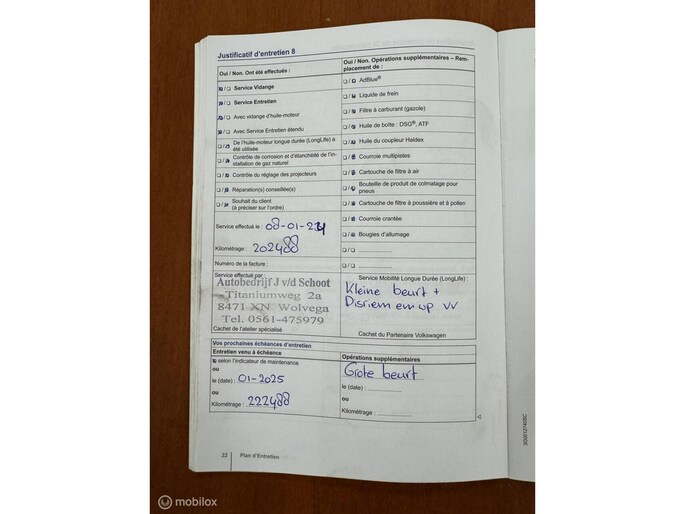 Justificatif d'entretien 8
Oui / Non. Ont été effectués :
Service Vidange
Service Entretien
Avec vidange d'huile-moteur
Avec Service Entretien étendu
De l'huile-moteur longue durée (LongLife) a
été utilisée
Contrôle de corrosion et d'étanchéité de l'in-
stallation de gaz naturel
Contrôle du réglage des projecteurs
Réparation(s) conseillée(s)
Souhait du client
(à préciser sur l'ordre)
Service effectué le : 08-01-24
Kilométrage : 202488
Numéro de la facture :
Service effectué par :
Autobedrijf J v/d Schoot
Titaniumweg 2a
8471 XN Wolvega
Tel. 0561-475979
Cachet de l'atelier spécialisé
Oui / Non. Opérations supplémentaires – Rem-
placement de :
AdBlue®
Liquide de frein
Filtre à carburant (gazole)
Huile de boîte : DSG®, ATF
Huile du coupleur Haldex
Courroie multipistes
Cartouche de filtre à air
Bouteille de produit de colmatage pour
pneus
Cartouche de filtre à poussière et à pollen
Courroie crantée
Bougies d'allumage
Service Mobilité Longue Durée (LongLife) :
Kleine beurt +
Cachet du Partenaire Volkswagen
Vos prochaines échéances d'entretien
Entretien venu à échéance
selon l'indicateur de maintenance
ou
le (date) : 01-2025
ou
Kilométrage : 222488
Opérations supplémentaires
Grote beurt
le (date) :
ou
Kilométrage :
22 Plan d'Entretien
3G0012740SC
mobilox